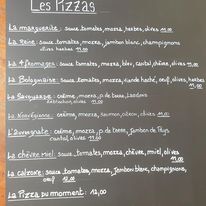 Les Pizzas
La marguerite: sauce tomates, mozza, herbes, olives 11,00
La Reine: sauce tomates, mozza, jambon blanc, champignons
olives herbes 11.00
La 4 fromages: sauce tomates, mozza, bleu, cantal, chèvre, olives
11.00
La Bolognaise: sauce tomates, mozza, viande haché, oeuf, olives, herbes
11.00
La Savoyarde: crème, mozza, p de terre, lardons
reblochon, olives 11.00
La Norvégienne: crème, mozza, saumon, olives 11.00
L'auvergnate: crème, mozza, p de terre, jambon de Pays
cantal, olives 11.00
La chèvre miel: sauce tomates, mozza, chèvre, miel, olives
11.00
La calzone: sauce tomates, mozza, jambon blanc, champignons,
oeuf 12.00
La Pizza du moment: 12,00